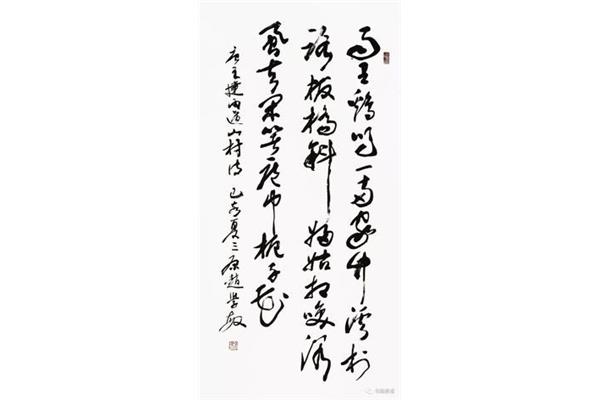 雨里鸡鸣一两家竹溪村
路板桥斜妇姑相唤浴
蚕去闲着庭中栀子花
唐王建雨过山村诗 己亥夏三原赵学敏